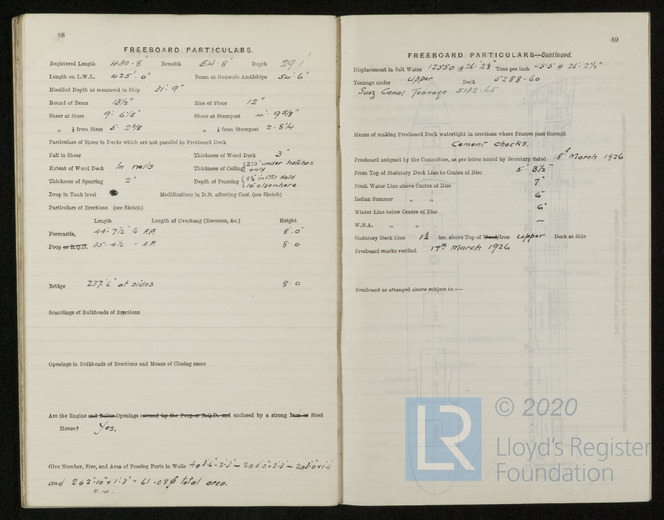 88
FREEBOARD PARTICULARS.
Registered Length 430·8' Breadth 54·8' Depth 29·1'
Length on L.W.L. 425' 0" Beam at Gunwale Amidships 54' 6"
Moulded Depth as measured in Ship 31' 9"
Round of Beam 13½" Rise of Floor 12"
Sheer at Stem Sheer at Sternpost
" ⅛ from Stem " ⅛ from Sternpost 2 · 8¼
Particulars of Sheer in Decks which are not parallel to Freeboard Deck
Fall in Sheer Thickness of Wood Deck 3"
Extent of Wood Deck In wells Thickness of Ceiling 2½" under hatches only
Thickness of Sparring 2" Depth of Framing in Nº1 Hold 10" elsewhere
Drop in Tank level Modifications in D.B. affecting Coef. (see Sketch)
Particulars of Erections (see Sketch)
Length Length of Overhang (Recesses, &c.) Height
Forecastle, 44' 7½" 8' 0"
Poop or R.Q.D. 35' 4½ 8 · 0
Bridge 237' 6" at sides 8 · 0
Scantlings of Bulkheads of Erections
Openings in Bulkheads of Erections and Means of Closing same
Are the Engine and Boiler Openings covered by the Poop or R.Q.D. and enclosed by a strong Iron or Steel
House? Yes.
Give Number, Size, and Area of Freeing Ports in Wells
and total area.
89
FREEBOARD PARTICULARS—Continued.
Displacement in Salt Water 12550 @ Tons per inch
Tonnage under Upper Deck 5288·60
Suez Canal Tonnage 5132·65
Means of making Freeboard Deck watertight in erections where Frames pass through
Cement chocks.
Freeboard assigned by the Committee, as per letter issued by Secretary dated March 1926
From Top of Statutory Deck Line to Centre of Disc 5' 8½"
Fresh Water Line above Centre of Disc 7"
Indian Summer " " 6"
Winter Line below Centre of Disc 6"
W.N.A. " " ~
Statutory Deck Line 1½ ins. above Top of Wood/Iron Upper Deck at Side
Freeboard marks verified 17th March 1926
Freeboard as arranged above subject to :—
LR
© 2020
Lloyd's Register
Foundation